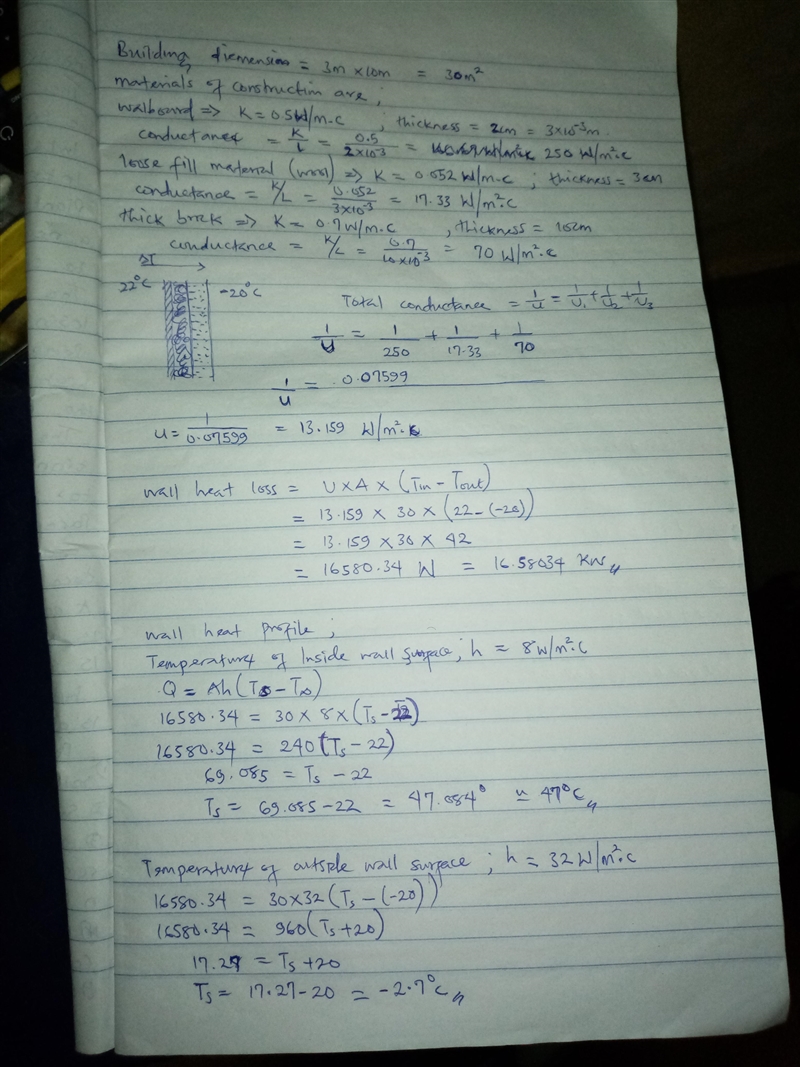 Building diemension = 3m x 10m = 30m²
materials of construction are;
wallboard => K = 0.5W/m.c ; thickness = 2cm = 3x10⁻³m
conductance = K/L = 0.5/2x10⁻³ = 250 W/m².c
loose fill material (wool) => K = 0.052 W/m.c ; thickness = 3cm
conductance = K/L = 0.052/3x10⁻³ = 17.33 W/m².C
thick brick => K = 0.7W/m.C , thickness = 10cm
conductance = K/L = 0.7/10x10⁻³ = 70 W/m².c
22°C -20°C
Total conductance = 1/u = 1/U₁ + 1/U₂ + 1/U₃
1/U = 1/250 + 1/17.33 + 1/70
1/u = 0.07599
u = 1/0.07599 = 13.159 W/m².k
wall heat loss = U x A x (Tin - Tout)
= 13.159 x 30 x (22-(-20))
= 13.159 x 30 x 42
= 16580.34 W = 16.58034 KW
wall heat profile;
Temperature of Inside wall surface; h = 8W/m².C
Q = Ah(Ts - T∞)
16580.34 = 30 x 8 x (Ts - 22)
16580.34 = 240(Ts - 22)
69.085 = Ts - 22
Ts = 69.085 - 22 = 47.084° ≃ 47°C
Temperature of outside wall surface ; h = 32W/m².C
16580.34 = 30x32(Ts - (-20))
16580.34 = 960(Ts + 20)
17.27 = Ts + 20
Ts = 17.27 - 20 = -2.7°C